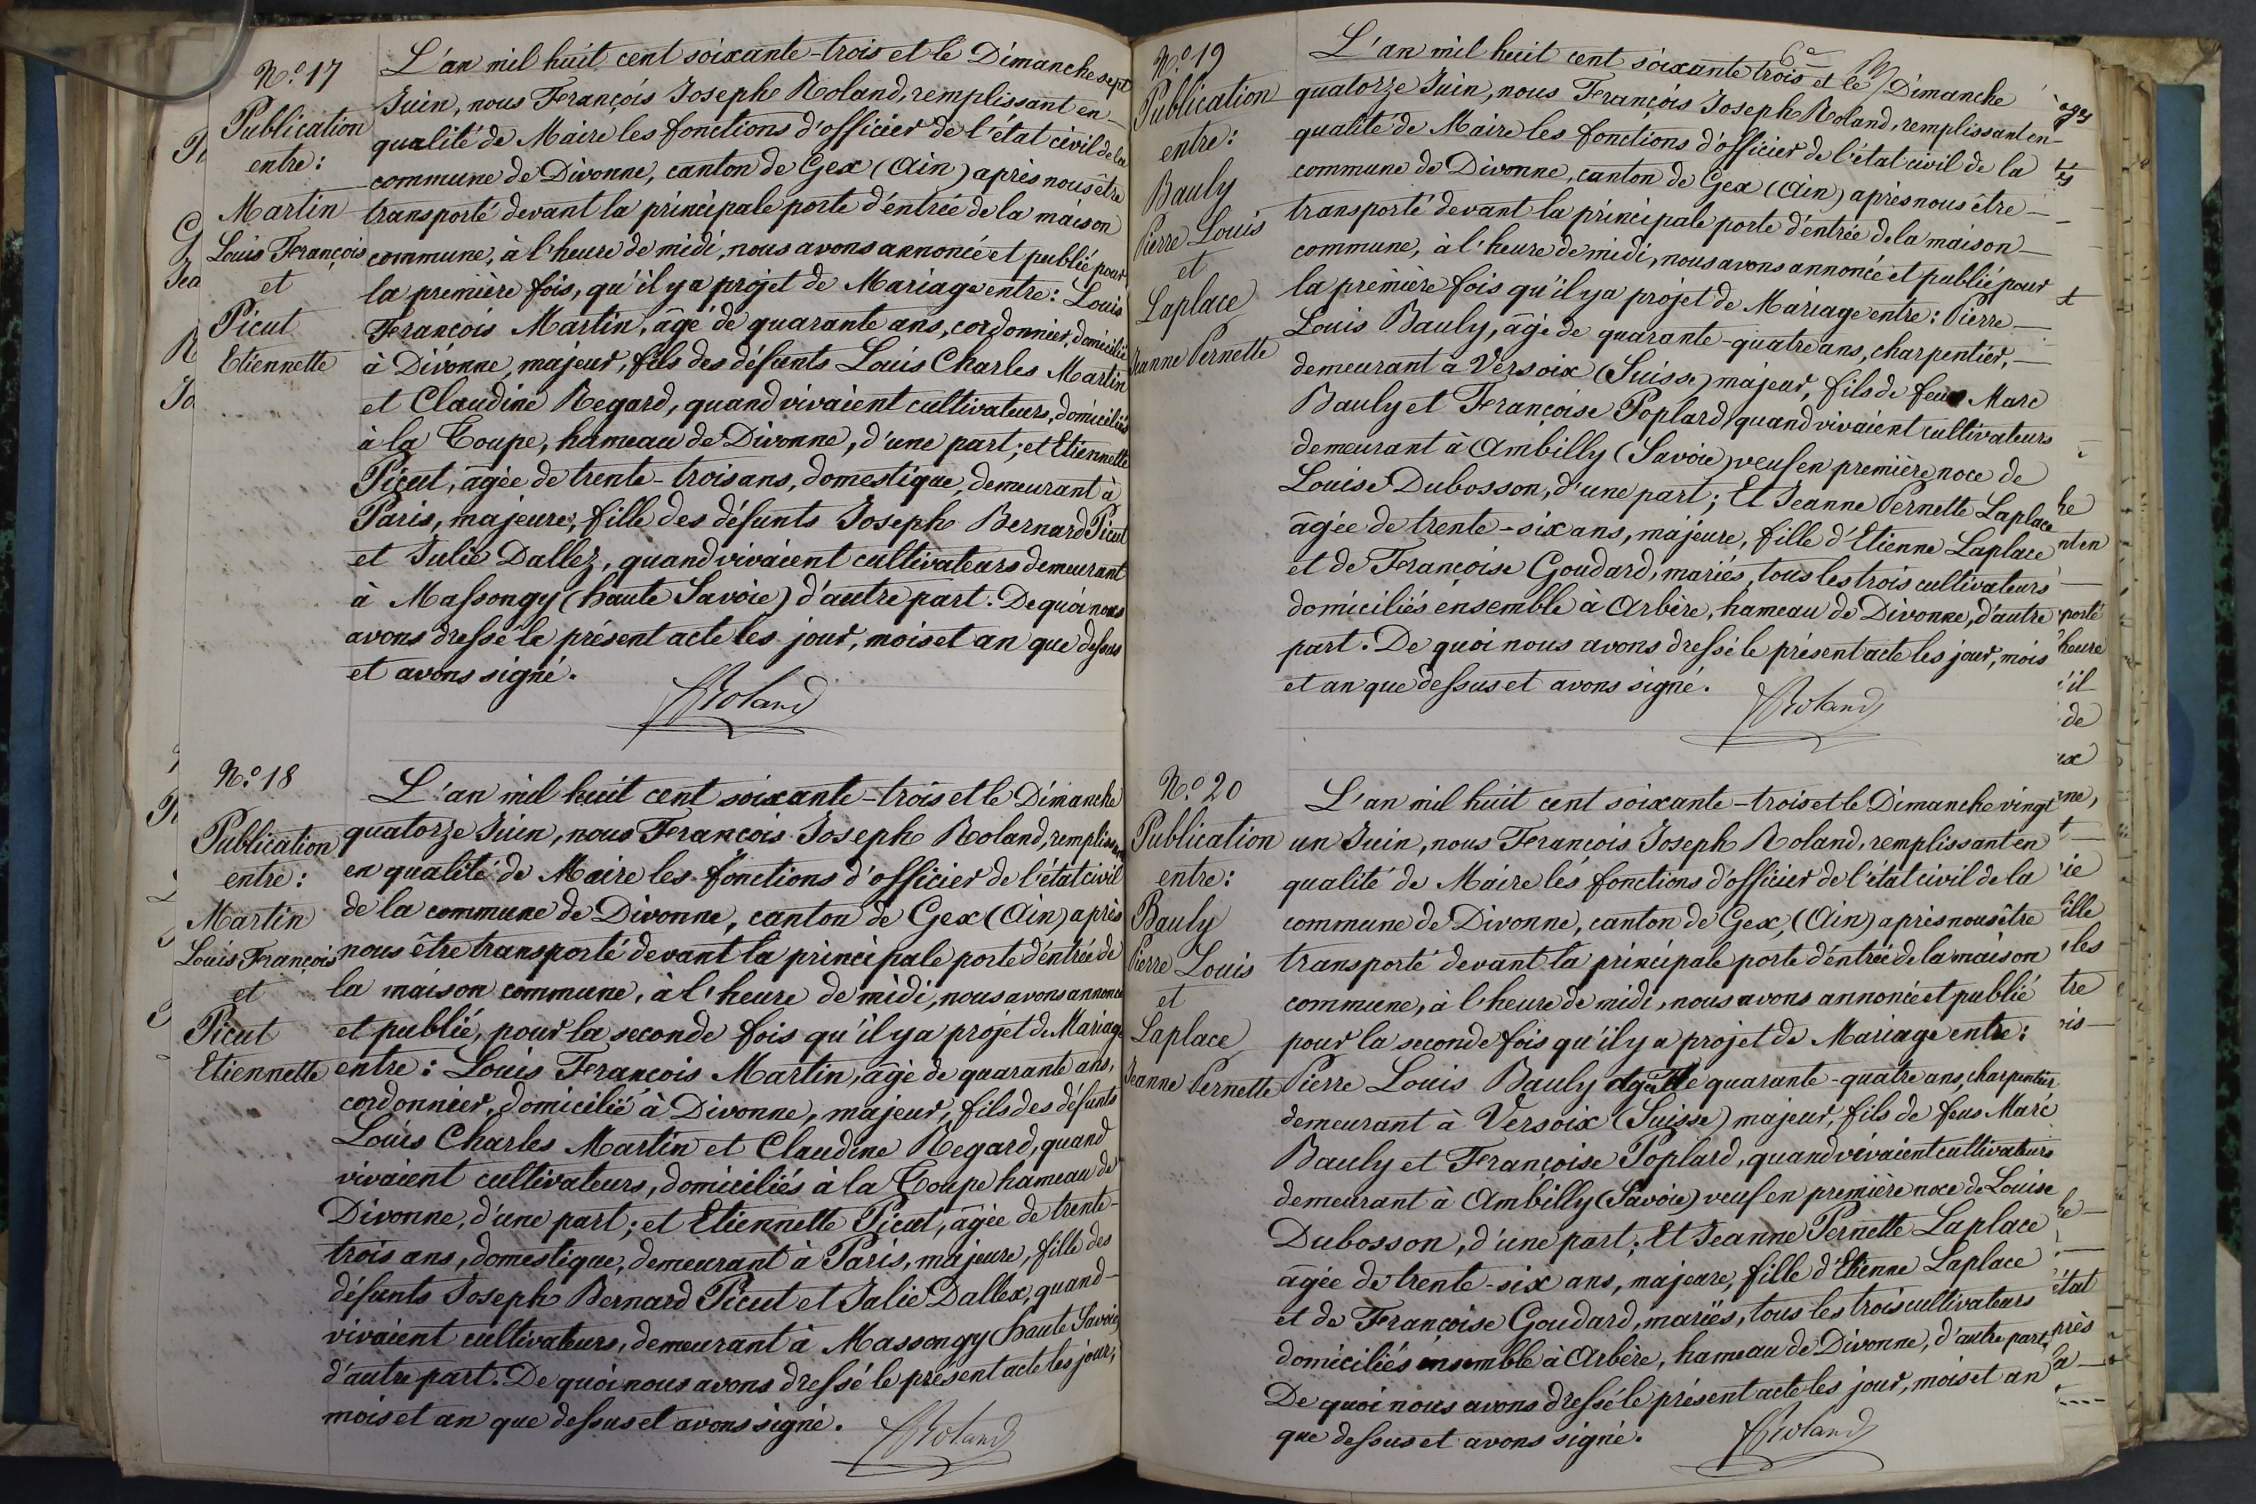 N.o 17
Publication
entre:
Martin
Louis François
et
Picut
Etiennette
L'an mil huit cent soixante-trois et le Dimanche sept
Juin, nous François Joseph Roland, remplissant en
qualité de Maire les fonctions d'officier de l'état civil de la
commune de Divonne, canton de Gex (Ain) après nous être
transporté devant la principale porte d'entrée de la maison
commune, à l'heure de midi, nous avons annoncé et publié pour
la première fois, qu'il y a projet de Mariage entre: Louis
François Martin, âgé de quarante ans, cordonnier, domicilié
à Divonne, majeur, fils des défunts Louis Charles Martin
et Claudine Regard, quand vivaient cultivateurs, domiciliés
à la Coupe, hameau de Divonne, d'une part; et Etiennette
Picut, âgée de trente-trois ans, domestique, demeurant à
Paris, majeure, fille des défunts Joseph Bernard Picut
et Julie Dallez, quand vivaient cultivateurs demeurant
à Massongy (haute Savoie) d'autre part. De quoi nous
avons dressé le présent acte les jour, mois et an que dessus
et avons signé.
Roland
N.o 18
Publication
entre:
Martin
Louis François
et
Picut
Etiennette
L'an mil huit cent soixante-trois et le Dimanche
quatorze Juin, nous François Joseph Roland, remplissant
en qualité de Maire les fonctions d'officier de l'état civil
de la commune de Divonne, canton de Gex (Ain) après
nous être transporté devant la principale porte d'entrée de
la maison commune, à l'heure de midi, nous avons annoncé
et publié, pour la seconde fois qu'il y a projet de Mariage
entre: Louis François Martin, âgé de quarante ans,
cordonnier, domicilié à Divonne, majeur, fils des défunts
Louis Charles Martin et Claudine Regard, quand
vivaient cultivateurs, domiciliés à la Coupe hameau de
Divonne, d'une part; et Etiennette Picut, âgée de trente-
trois ans, domestique, demeurant à Paris, majeure, fille des
défunts Joseph Bernard Picut et Julie Dallex, quand
vivaient cultivateurs, demeurant à Massongy (haute Savoie)
d'autre part. De quoi nous avons dressé le présent acte les jour,
mois et an que dessus et avons signé.
Roland
N.o 19
Publication
entre:
Bauly
Pierre Louis
et
Laplace
Jeanne Pernette
L'an mil huit cent soixante trois et le Dimanche
quatorze Juin, nous François Joseph Roland, remplissant en
qualité de Maire les fonctions d'officier de l'état civil de la
commune de Divonne, canton de Gex (Ain) après nous être
transporté devant la principale porte d'entrée de la maison
commune, à l'heure de midi, nous avons annoncé et publié pour
la première fois qu'il y a projet de Mariage entre: Pierre
Louis Bauly, âgé de quarante-quatre ans, charpentier,
demeurant à Versoix (Suisse) majeur, fils de feus Marc
Bauly et Françoise Poplard, quand vivaient cultivateurs
demeurant à Ambilly (Savoie) veuf en première noce de
Louise Dubosson, d'une part; Et Jeanne Pernette Laplace
âgée de trente-six ans, majeure, fille d'Etienne Laplace
et de Françoise Goudard, mariés, tous les trois cultivateurs
domiciliés ensemble à Arbère, hameau de Divonne, d'autre
part. De quoi nous avons dressé le présent acte les jour, mois
et an que dessus et avons signé.
Roland
N.o 20
Publication
entre:
Bauly
Pierre Louis
et
Laplace
Jeanne Pernette
L'an mil huit cent soixante-trois et le Dimanche vingt
un Juin, nous François Joseph Roland, remplissant en
qualité de Maire les fonctions d'officier de l'état civil de la
commune de Divonne, canton de Gex, (Ain) après nous être
transporté devant la principale porte d'entrée de la maison
commune, à l'heure de midi, nous avons annoncé et publié
pour la seconde fois qu'il y a projet de Mariage entre:
Pierre Louis Bauly âgé de quarante-quatre ans, charpentier
demeurant à Versoix (Suisse) majeur, fils de feus Marc
Bauly et Françoise Poplard, quand vivaient cultivateurs
demeurant à Ambilly (Savoie) veuf en première noce de Louise
Dubosson, d'une part; Et Jeanne Pernette Laplace
âgée de trente-six ans, majeure, fille d'Etienne Laplace
et de Françoise Goudard, mariés, tous les trois cultivateurs
domiciliés ensemble à Arbère, hameau de Divonne, d'autre part,
De quoi nous avons dressé le présent acte les jour, mois et an
que dessus et avons signé.
Roland